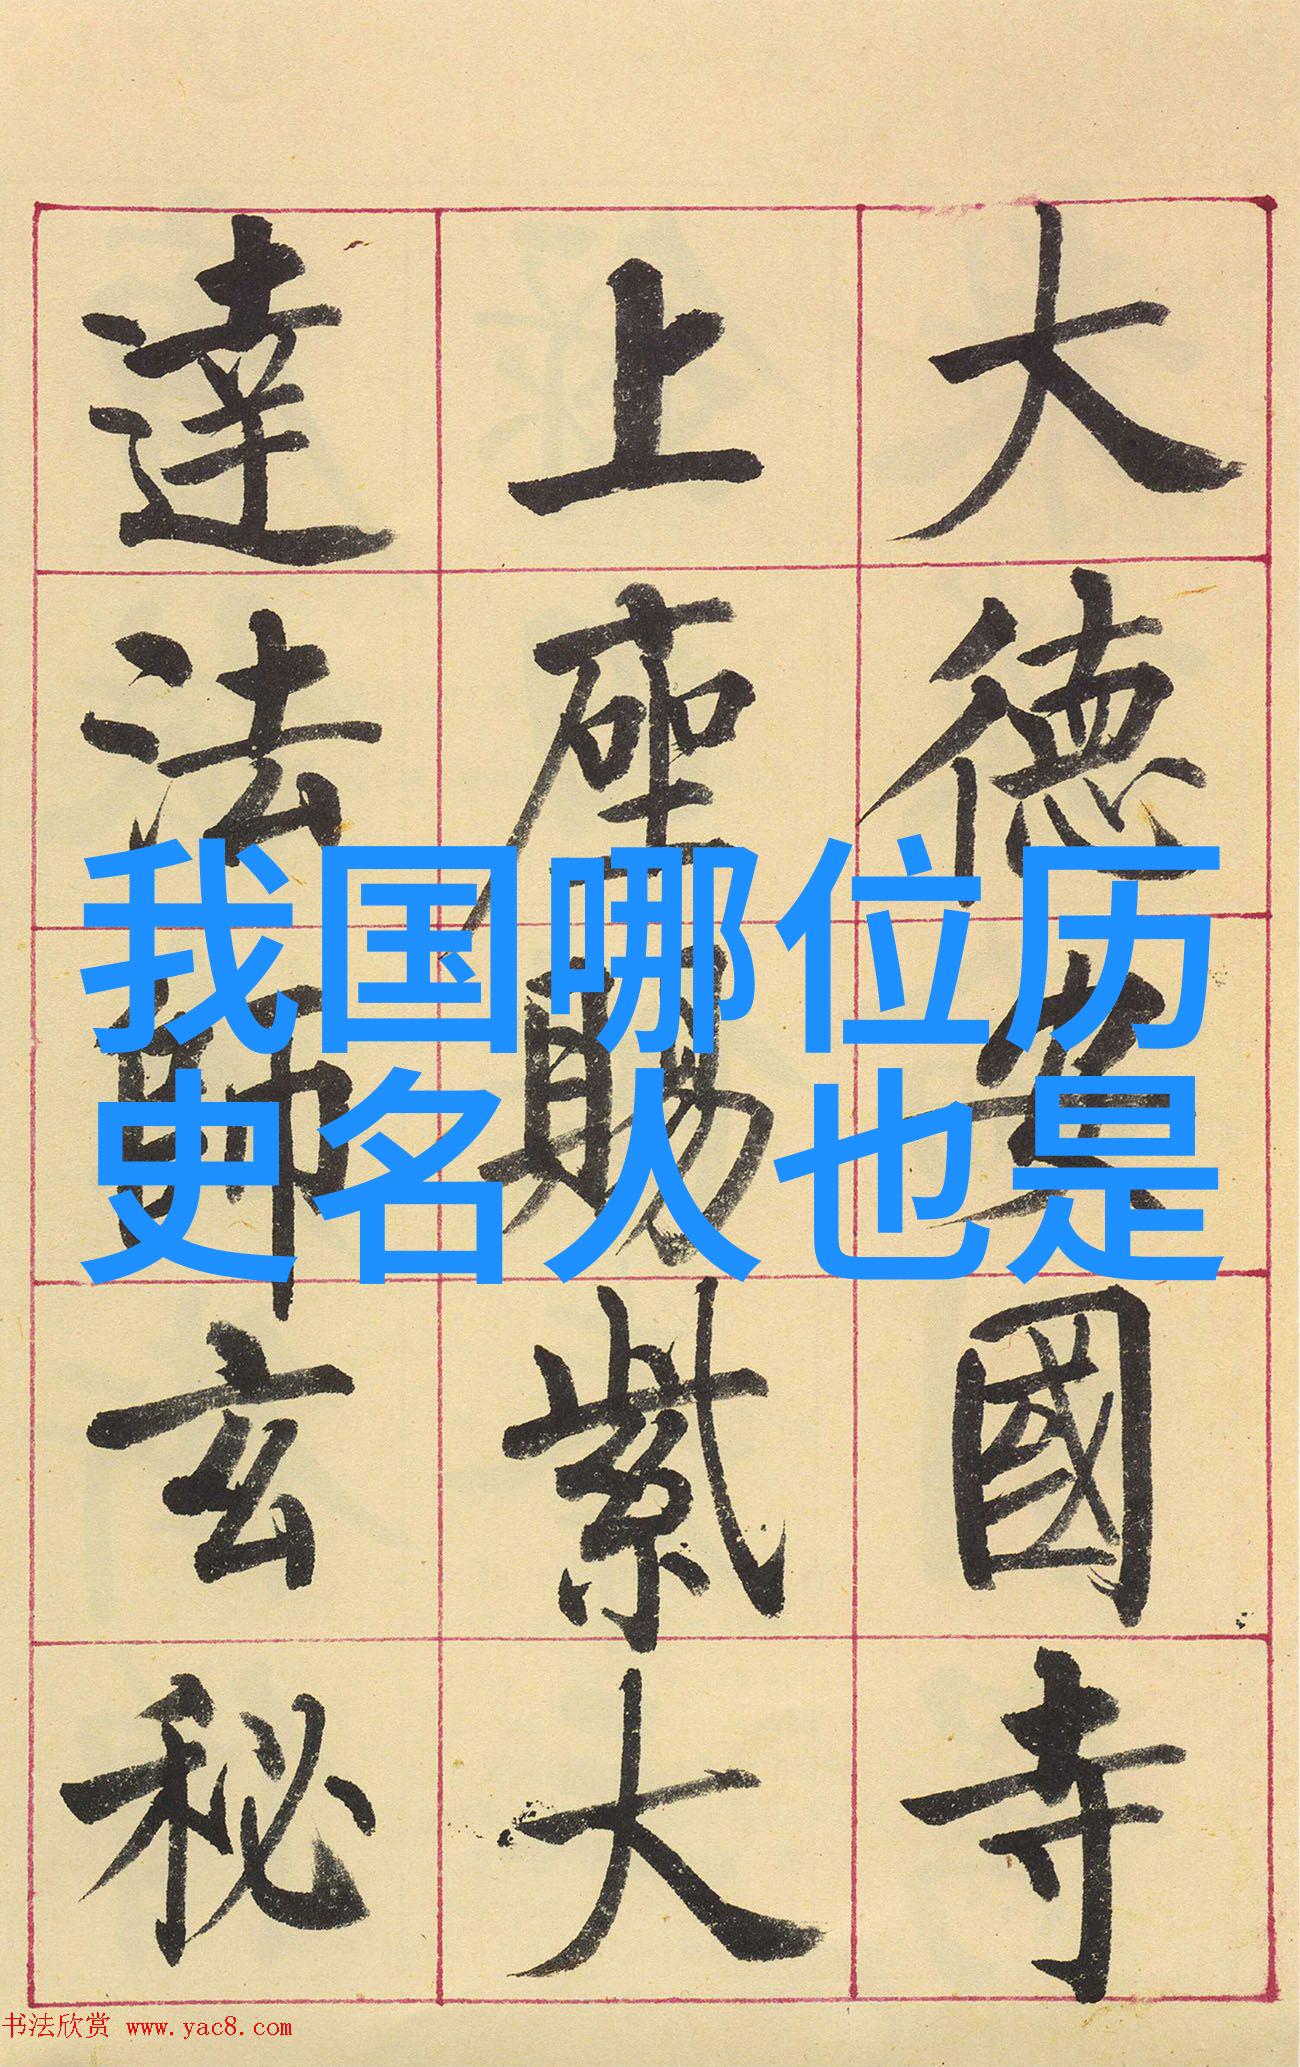 大德安國寺
上座賜紫大
達法師玄秘
我国哪位历
史名人也是
书法欣赏 www.yac8.com